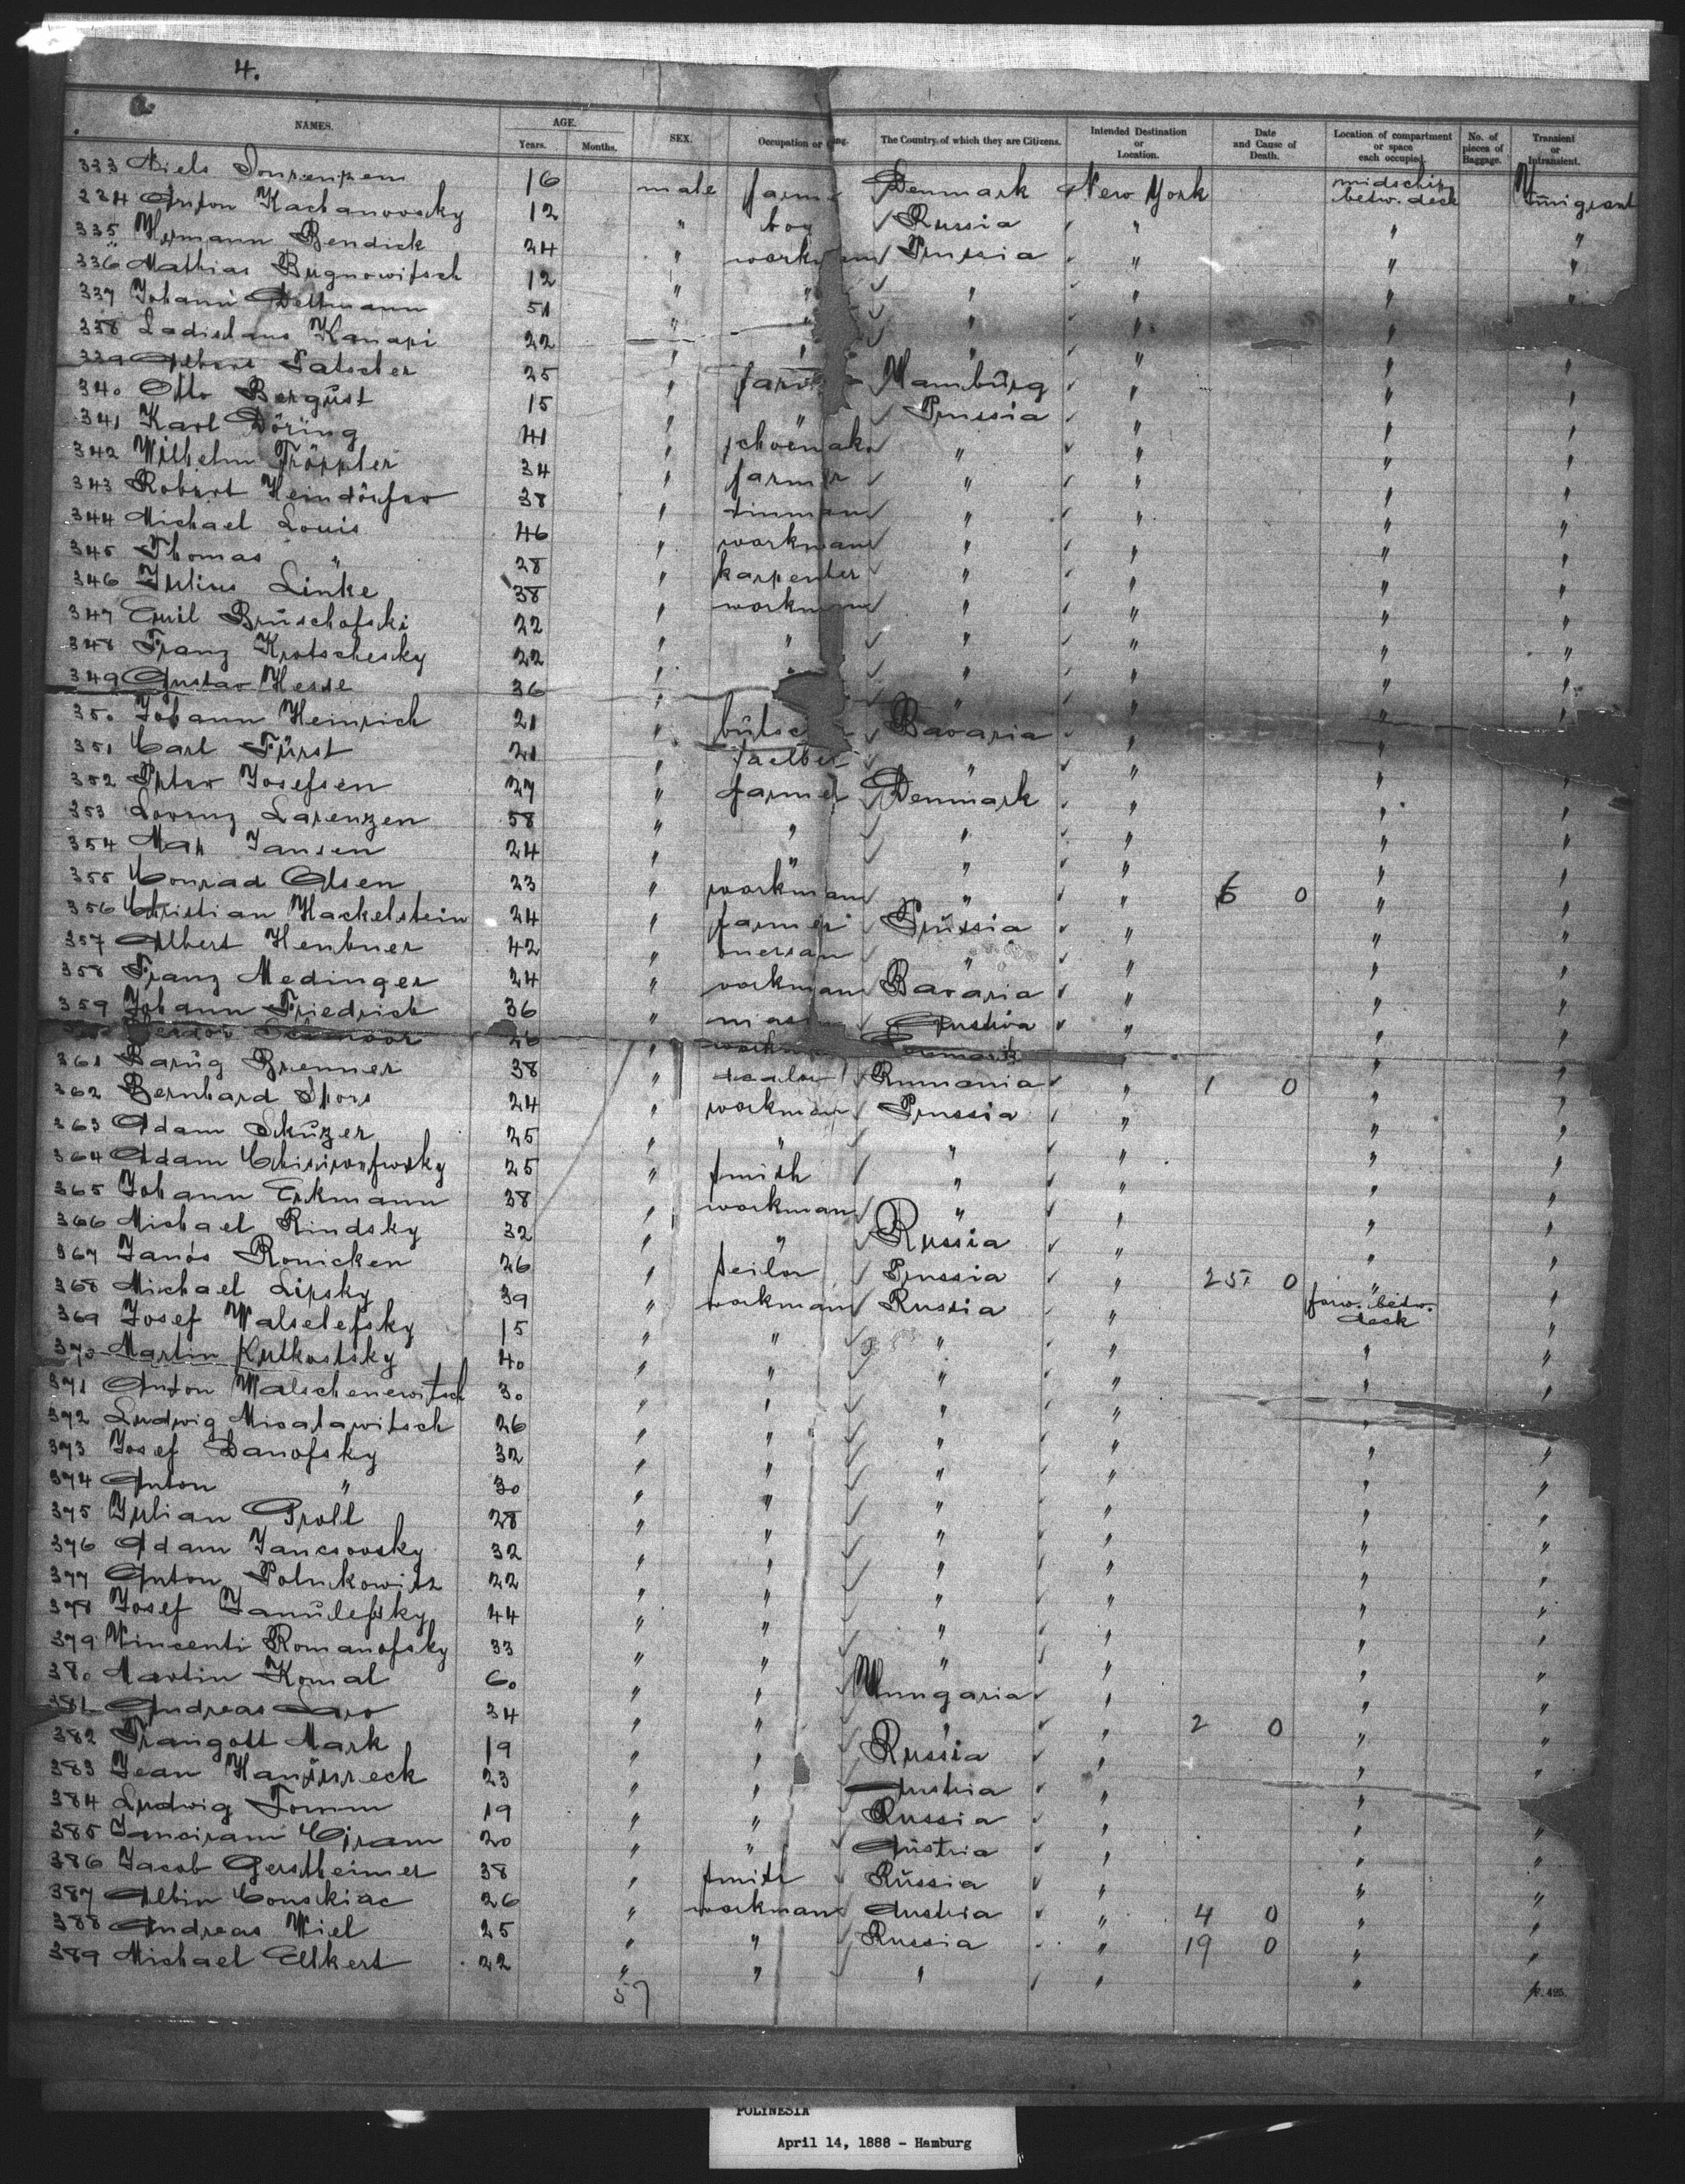 4.
NAMES. AGE. Years. Months. SEX. Occupation or The Country, of which they are Citizens. Intended Destination or Location. Date and Cause of Death. Location of compartment or space each occupied. No. of pieces of Baggage. Transient or Intransient.
333 Niels 16 male Denmark New York midschip betw. deck
334 Anton Kachanovosky 12 " boy ✓ Russia " " "
335 Hermann Bendick 24 " ✓ Prussia " " "
336 Mathias Bugnowitsch 12 " " ✓ " " " "
337 Johann Dettmann 51 " " ✓ " " "
338 Ladislaus Kanapi 22 " " " " "
339 Albert Patscher 25 " Hamburg " " "
340 Otto Bergust 15 " " ✓ Prussia " " "
341 Karl Döring 41 " " " " "
342 Wilhelm Tröppler 34 " farmer " " " "
343 Robert Heindörfer 38 " tinman ✓ " " " "
344 Michael Louis 46 " workman ✓ " " " "
345 Thomas " 28 " karpenter " " " "
346 Julius Linke 38 " workman ✓ " " " "
347 Emil Bruschofski 22 " " ✓ " " " "
348 Franz Krotschesky 22 " " ✓ " " " "
349 Gustav Hesse 36 " ✓ " " " "
350 Johann Heinrich 21 " Bavaria " " "
351 Carl Fürst 21 " ✓ " " " "
352 Peter Josefsen 27 " farmer ✓ Denmark " " "
353 Lorenz Larenzen 58 " " ✓ " " " "
354 Max Jansen 24 " " ✓ " " " "
355 Conrad Olsen 23 " workman ✓ " " 6 0 " "
356 Christian Hackelstein 24 " farmer Prussia " " "
357 Albert Henbner 42 " ✓ " " " "
358 Franz Medinger 24 " workman Bavaria " " "
359 Johann Friedrich 36 " Austria " " "
26 "
361 Barug Brenner 38 " dealer ✓ Rumania " 1 0 " "
362 Bernhard Spors 24 " workman ✓ Prussia " " "
363 Adam Skuzer 25 " " ✓ " " " "
364 Adam 25 " smith " " " "
365 Johann Erkmann 38 " workman ✓ " " " "
366 Michael Rindsky 32 " " ✓ Russia " " "
367 Janos Ronicken 26 " teilor ✓ Prussia " 25 0 " "
368 Michael Lipsky 39 " workman ✓ Russia " forw. betw. deck "
369 Josef Walselefsky 15 " " ✓ " " " "
370 Martin Kutkostsky 40 " " ✓ " " " "
371 Anton Walschenewitsch 30 " " ✓ " " " "
372 Ludwig Micalawitsch 26 " " ✓ " " " "
373 Josef Danofsky 32 " " ✓ " " " "
374 Anton " 30 " " ✓ " " " "
375 Julian Proll 28 " " ✓ " " " "
376 Adam Jancsovsky 32 " " ✓ " " " "
377 Anton Polnkowitz 22 " " ✓ " " " "
378 Josef Janulefsky 44 " " " " " "
379 Vincenti Romanofsky 33 " " ✓ " " " "
380 Martin Komal 60 " " ✓ Hungaria " " "
381 Andreas 34 " " ✓ " " 2 0 " "
382 Traugott Mark 19 " " ✓ Russia " " "
383 Jean 23 " " Austria " " "
384 Ludwig Tomm 19 " " Russia " " "
385 20 " " Austria " " "
386 Jacob Gerstheimer 38 " smith Russia " " "
387 Albin Conskiac 26 " workman Austria " 4 0 " "
388 Andreas Wiel 25 " " ✓ Russia " 19 0 " "
389 Michael Elkert 22 " " ✓ " " " "
57
POLYNESIA
April 14, 1888 - Hamburg